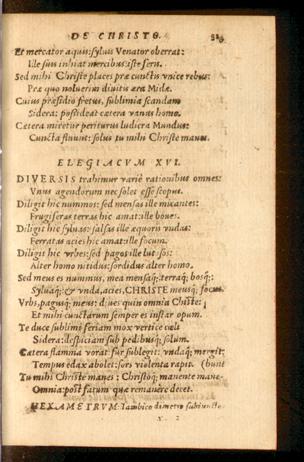 DE CHRISTO.
Et mercator aquis: syluis Venator oberrat:
Ille suis inhiat mercibus: iste feris.
Sed mihi Christe places præ cunctis vnice rebus:
Præ quo noluerim diuitis æra Midæ.
Cuius præsidio fretus, sublimia scandam
Sidera: postideat cætera vanus homo.
Cætera miretur periturus ludicra Mundus:
Cuncta fluunt: solus tu mihi Christe manes.
ELEGIACVM XVI.
DIVERSIS trahimur varie rationibus omnes:
Vnus agendorum nec solet esse scopus.
Diligit hic nummos: sed mensas ille micantes:
Frugiferas terras hic amat: ille boues.
Diligit hic syluas: salsas ille æquoris vndas:
Ferratas acies hic amat: ille focum.
Diligit hic vrbes: sed pagos ille
Alter homo nitidus: sordidus alter homo.
Sed meus es nummus, mea mensaq;: terraq; bosq;:
Syluaq;: & vnda, acies, CHRISTE meusq; focus.
Vrbs, pagusq; meus: diues quin omnia Chiste:
Et mihi cunctarum semper es instar opum.
Te duce sublimi feriam mox vertice cæli
Sidera: despiciam sub pedibusq; solum.
Cætera flamma vorat: fur sublegit: vndaq; mergit:
Tempus edax abolet: sors violenta rapit. (bunt
Tu mihi Christe manes: Christoq; manente mane-
Omnia: post fatum quæ remanere decet.
HEXAMETRVM: Iambico dimetro subiuncto
X 2